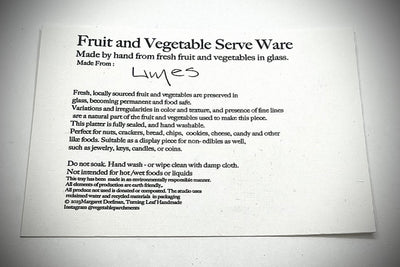 Fruit and Vegetable Serve Ware
Made by hand from fresh fruit and vegetables in glass.
Made From :
Limes
Fresh, locally sourced fruit and vegetables are preserved in
glass, becoming permanent and food safe.
Variations and irregularities in color and texture, and presence of fine lines
are a natural part of the fruit and vegetables used to make this piece.
This platter is fully sealed, and hand washable.
Perfect for nuts, crackers, bread, chips, cookies, cheese, candy and other
like foods. Suitable as a display piece for non- edibles as well,
such as jewelry, keys, candles, or coins.
Do not soak. Hand wash - or wipe clean with damp cloth.
Not intended for hot /wet foods or liquids
This tray has been made in an environmentally responsible manner.
All elements of production are earth friendly.
All product not used is donated or composted. The studio uses
reclaimed water and recycled materials in packaging
© 2023Margaret Dorfman, Turning Leaf Handmade
Instagram @vegetableparchments